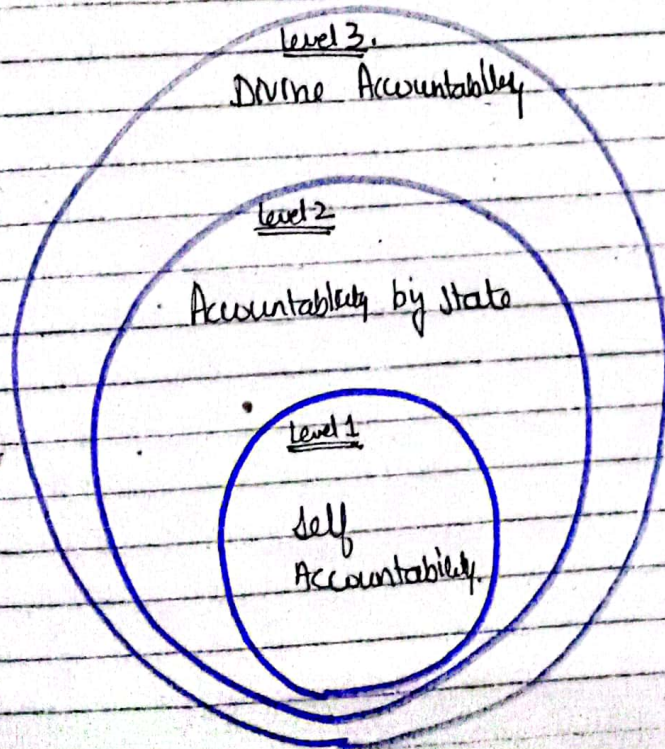 Level 3.
Divine Accountability
Level 2
Accountability by state
Level 1
Self
Accountability.